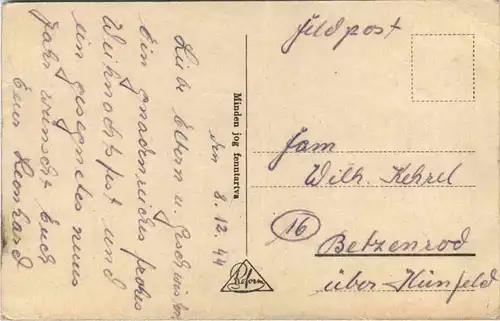 den 8.12.44
Liebe Eltern u. Geschwister
Ein gnadenreiches frohes
Weihnachtsfest und
ein gesegnetes neues
Jahr wünscht Euch
Euer Leonhard
Minden jog fenntartva
Reform
Feldpost
Fam
Wilh. Kehrel
16
Betzenrod
über Hünfeld